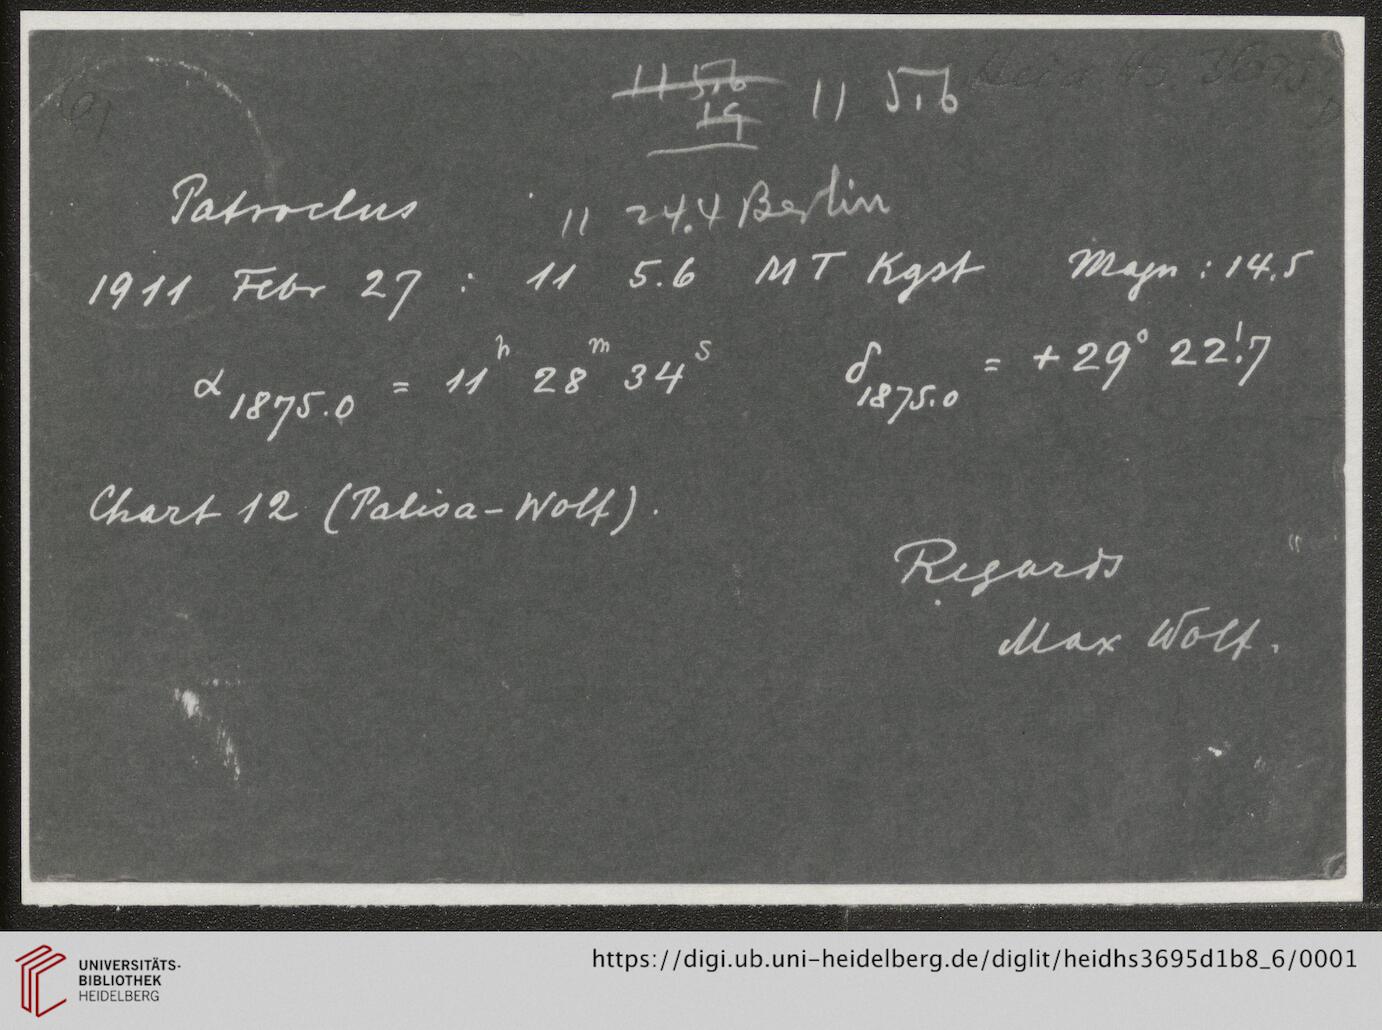 Heid. Hs. 3695 D
91
11 5.6
19
11 5.6
Patroclus
11 24.4 Berlin
1911 Febr 27 : 11 5.6 MT Kgst Magn : 14.5
α 1875.0 = 11h 28m 34s δ 1875.0 = +29° 22!7
Chart 12 (Palisa-Wolf).
Regards
Max Wolf.
UNIVERSITÄTS-
BIBLIOTHEK
HEIDELBERG
https://digi.ub.uni-heidelberg.de/diglit/heidhs3695d1b8_6/0001